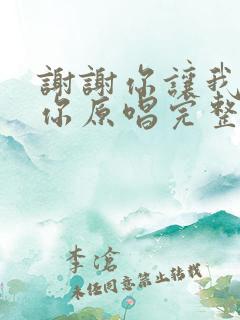 謝謝你讓我
你原唱完整
李滄
未经同意禁止转载